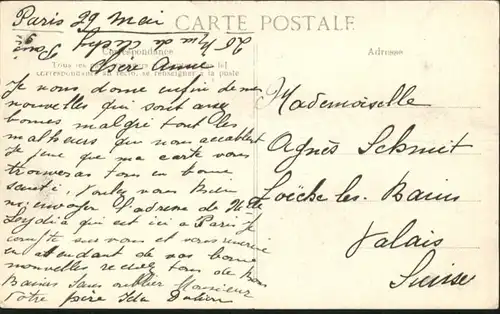 CARTE POSTALE
Paris 29 Mai
26 Rue de Clichy Paris
Correspondance
Tous les pays étrangers n'acceptent pas la
correspondance au recto, se renseigner à la poste
Chère Anne
Je vous donne enfin de mes
nouvelles qui sont assez
bonnes malgré tout les
malheurs qui nous accablent
Je pense que ma carte vous
trouveras tous en bonne
santé. Voulez vous bien
m'envoyer l'adresse de Mlle
Leydia qui est ici à Paris Je
compte sur vous et vous remercie
en attendant de vos bonne
nouvelles recevez tous de bons
Baisers sans oublier Monsieur
Votre père Ida
Adresse
Mademoiselle
Agnès Schmit
Loëche les Bains
Valais
Suisse